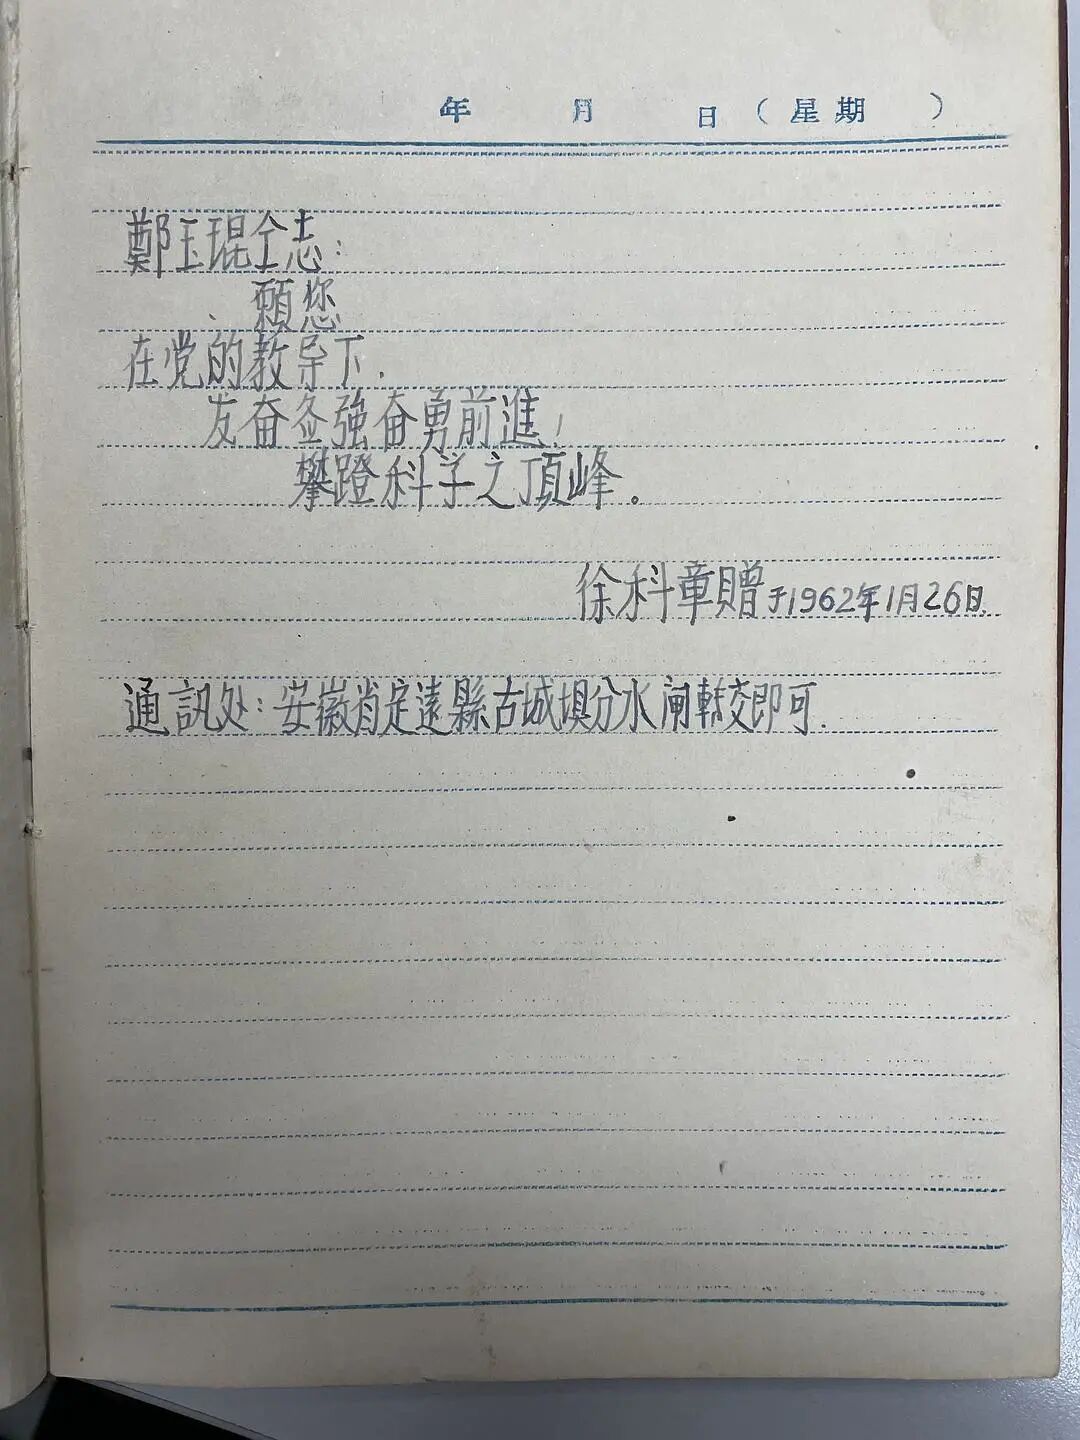 年 月 日（星期 ）
鄭玉琨仝志：
願您
在党的教导下.
友奋图強奋勇前進，
攀蹬科学之顶峰。
徐科章贈于1962年1月26日.
通訊处：安徽肖定遠縣古城埧分水闸轉交即可.